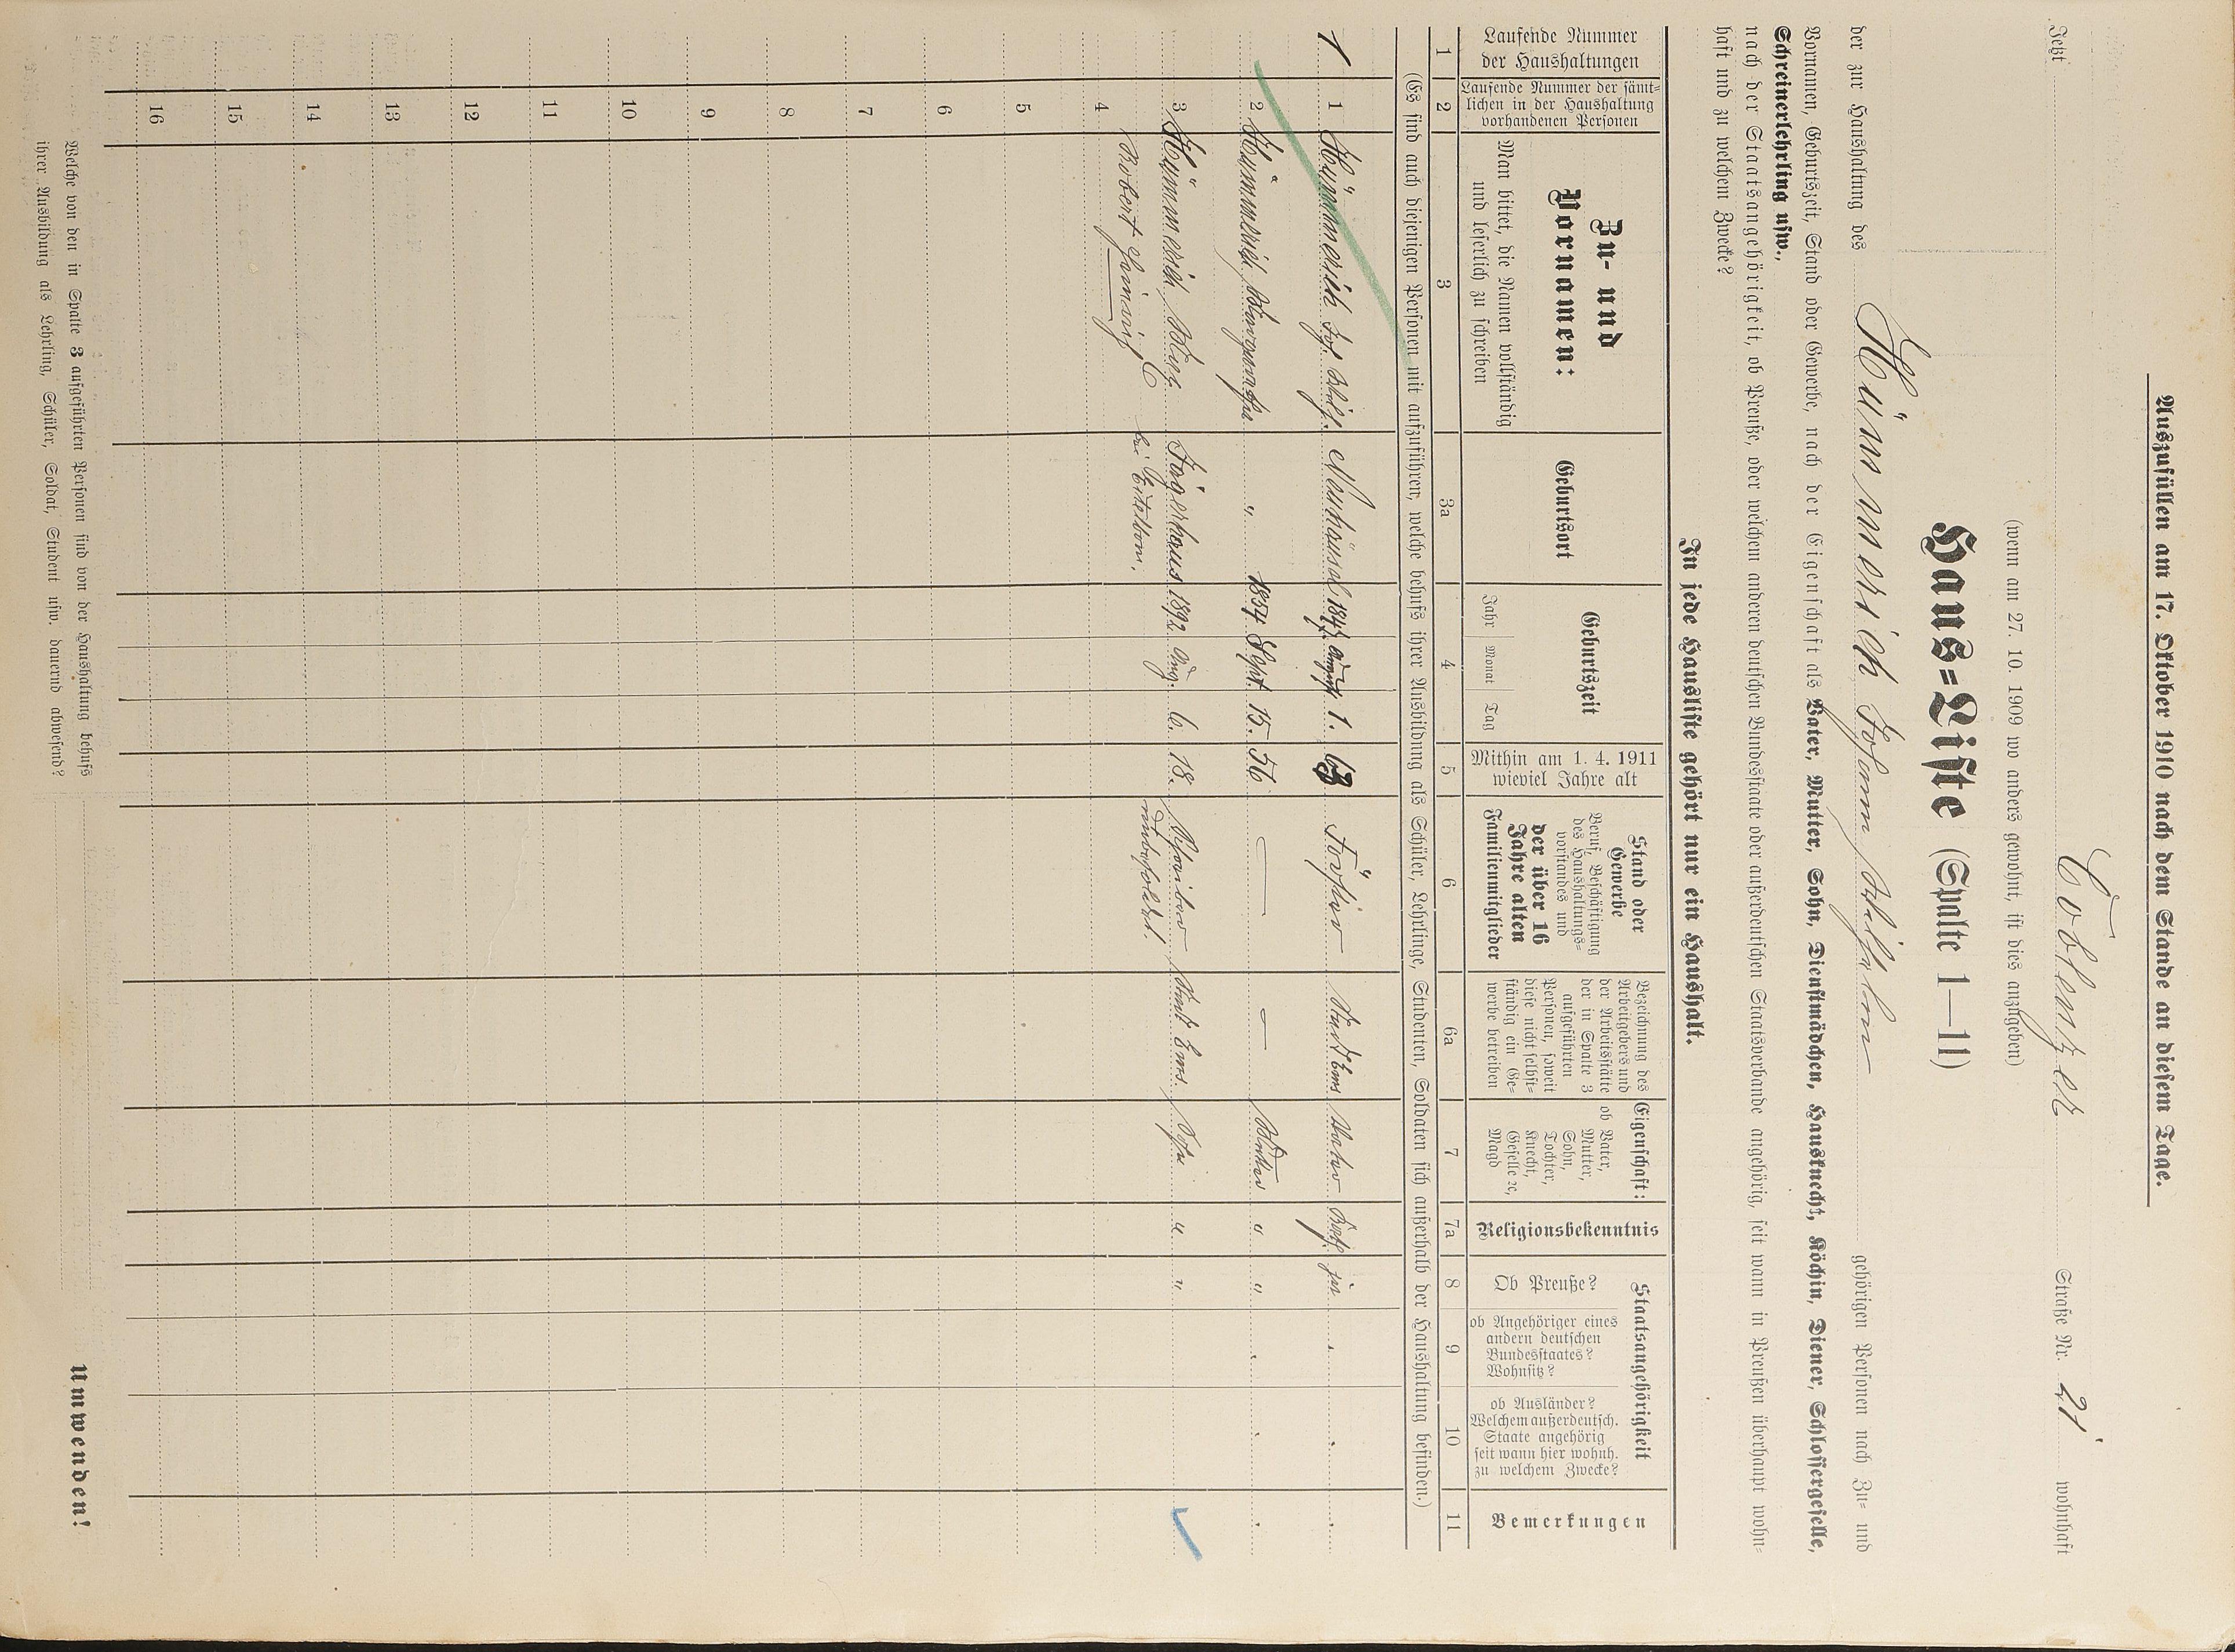 Auszufüllen am 17. Oktober 1910 nach dem Stande an diesem Tage.
Jetzt Coblenzer Straße Nr. 21 wohnhaft
(wenn am 27. 10. 1909 wo anders gewohnt, ist dies anzugeben)
Haus=Liste (Spalte 1—11)
der zur Haushaltung des Hümmerich Johann Wilhelm gehörigen Personen nach Zu= und
Vornamen, Geburtszeit, Stand oder Gewerbe, nach der Eigenschaft als Vater, Mutter, Sohn, Dienstmädchen, Hausknecht, Köchin, Diener, Schlossergeselle,
Schreinerlehrling usw.,
nach der Staatsangehörigkeit, ob Preuße, oder welchem anderen deutschen Bundesstaate oder außerdeutschen Staatsverbande angehörig, seit wann in Preußen überhaupt wohn=
haft und zu welchem Zwecke?
In jede Hausliste gehört nur ein Haushalt.
Laufende Nummer
der Haushaltungen
Laufende Nummer der sämt=
lichen in der Haushaltung
vorhandenen Personen
Zu- und
Vornamen:
Man bittet, die Namen vollständig
und leserlich zu schreiben
Geburtsort
Geburtszeit
Jahr Monat Tag
Mithin am 1. 4. 1911
wieviel Jahre alt
Stand oder
Gewerbe
Beruf, Beschäftigung
des Haushaltungs=
vorstandes und
der über 16
Jahre alten
Familienmitglieder
Bezeichnung des
Arbeitgebers und
der Arbeitsstätte
der in Spalte 3
aufgeführten
Personen, soweit
diese nicht selbst=
ständig ein Ge=
werbe betreiben
Eigenschaft:
ob Vater,
Mutter,
Sohn,
Tochter,
Knecht,
Geselle ꝛc,
Magd
Religionsbekenntnis
Staatsangehörigkeit
Ob Preuße?
ob Angehöriger eines
andern deutschen
Bundesstaates?
Wohnsitz?
ob Ausländer?
Welchem außerdeutsch.
Staate angehörig
seit wann hier wohnh.
zu welchem Zwecke?
Bemerkungen
1 2 3 3a 4 5 6 6a 7 7a 8 9 10 11
(Es sind auch diejenigen Personen mit aufzuführen, welche behufs ihrer Ausbildung als Schüler, Lehrlinge, Studenten, Soldaten sich außerhalb der Haushaltung befinden.)
1 1 Hümmerich Joh. Wilh. Neuhäusel 1847 August 1. 63 Förster Stadt Ems Vater Kath. ja
2 Hümmerich, " 1854 Sept. 15. 56 — — Mutter " "
3 Hümmerich, Wilh. Jägerhaus 1892 Aug. 6. 18. Schreiber Stadt Ems. Sohn " "
4 Robert Heinrich bei Eitelborn.
5
6
7
8
9
10
11
12
13
14
15
16
Welche von den in Spalte 3 aufgeführten Personen sind von der Haushaltung behufs
ihrer Ausbildung als Lehrling, Schüler, Soldat, Student usw. dauernd abwesend?
Umwenden!